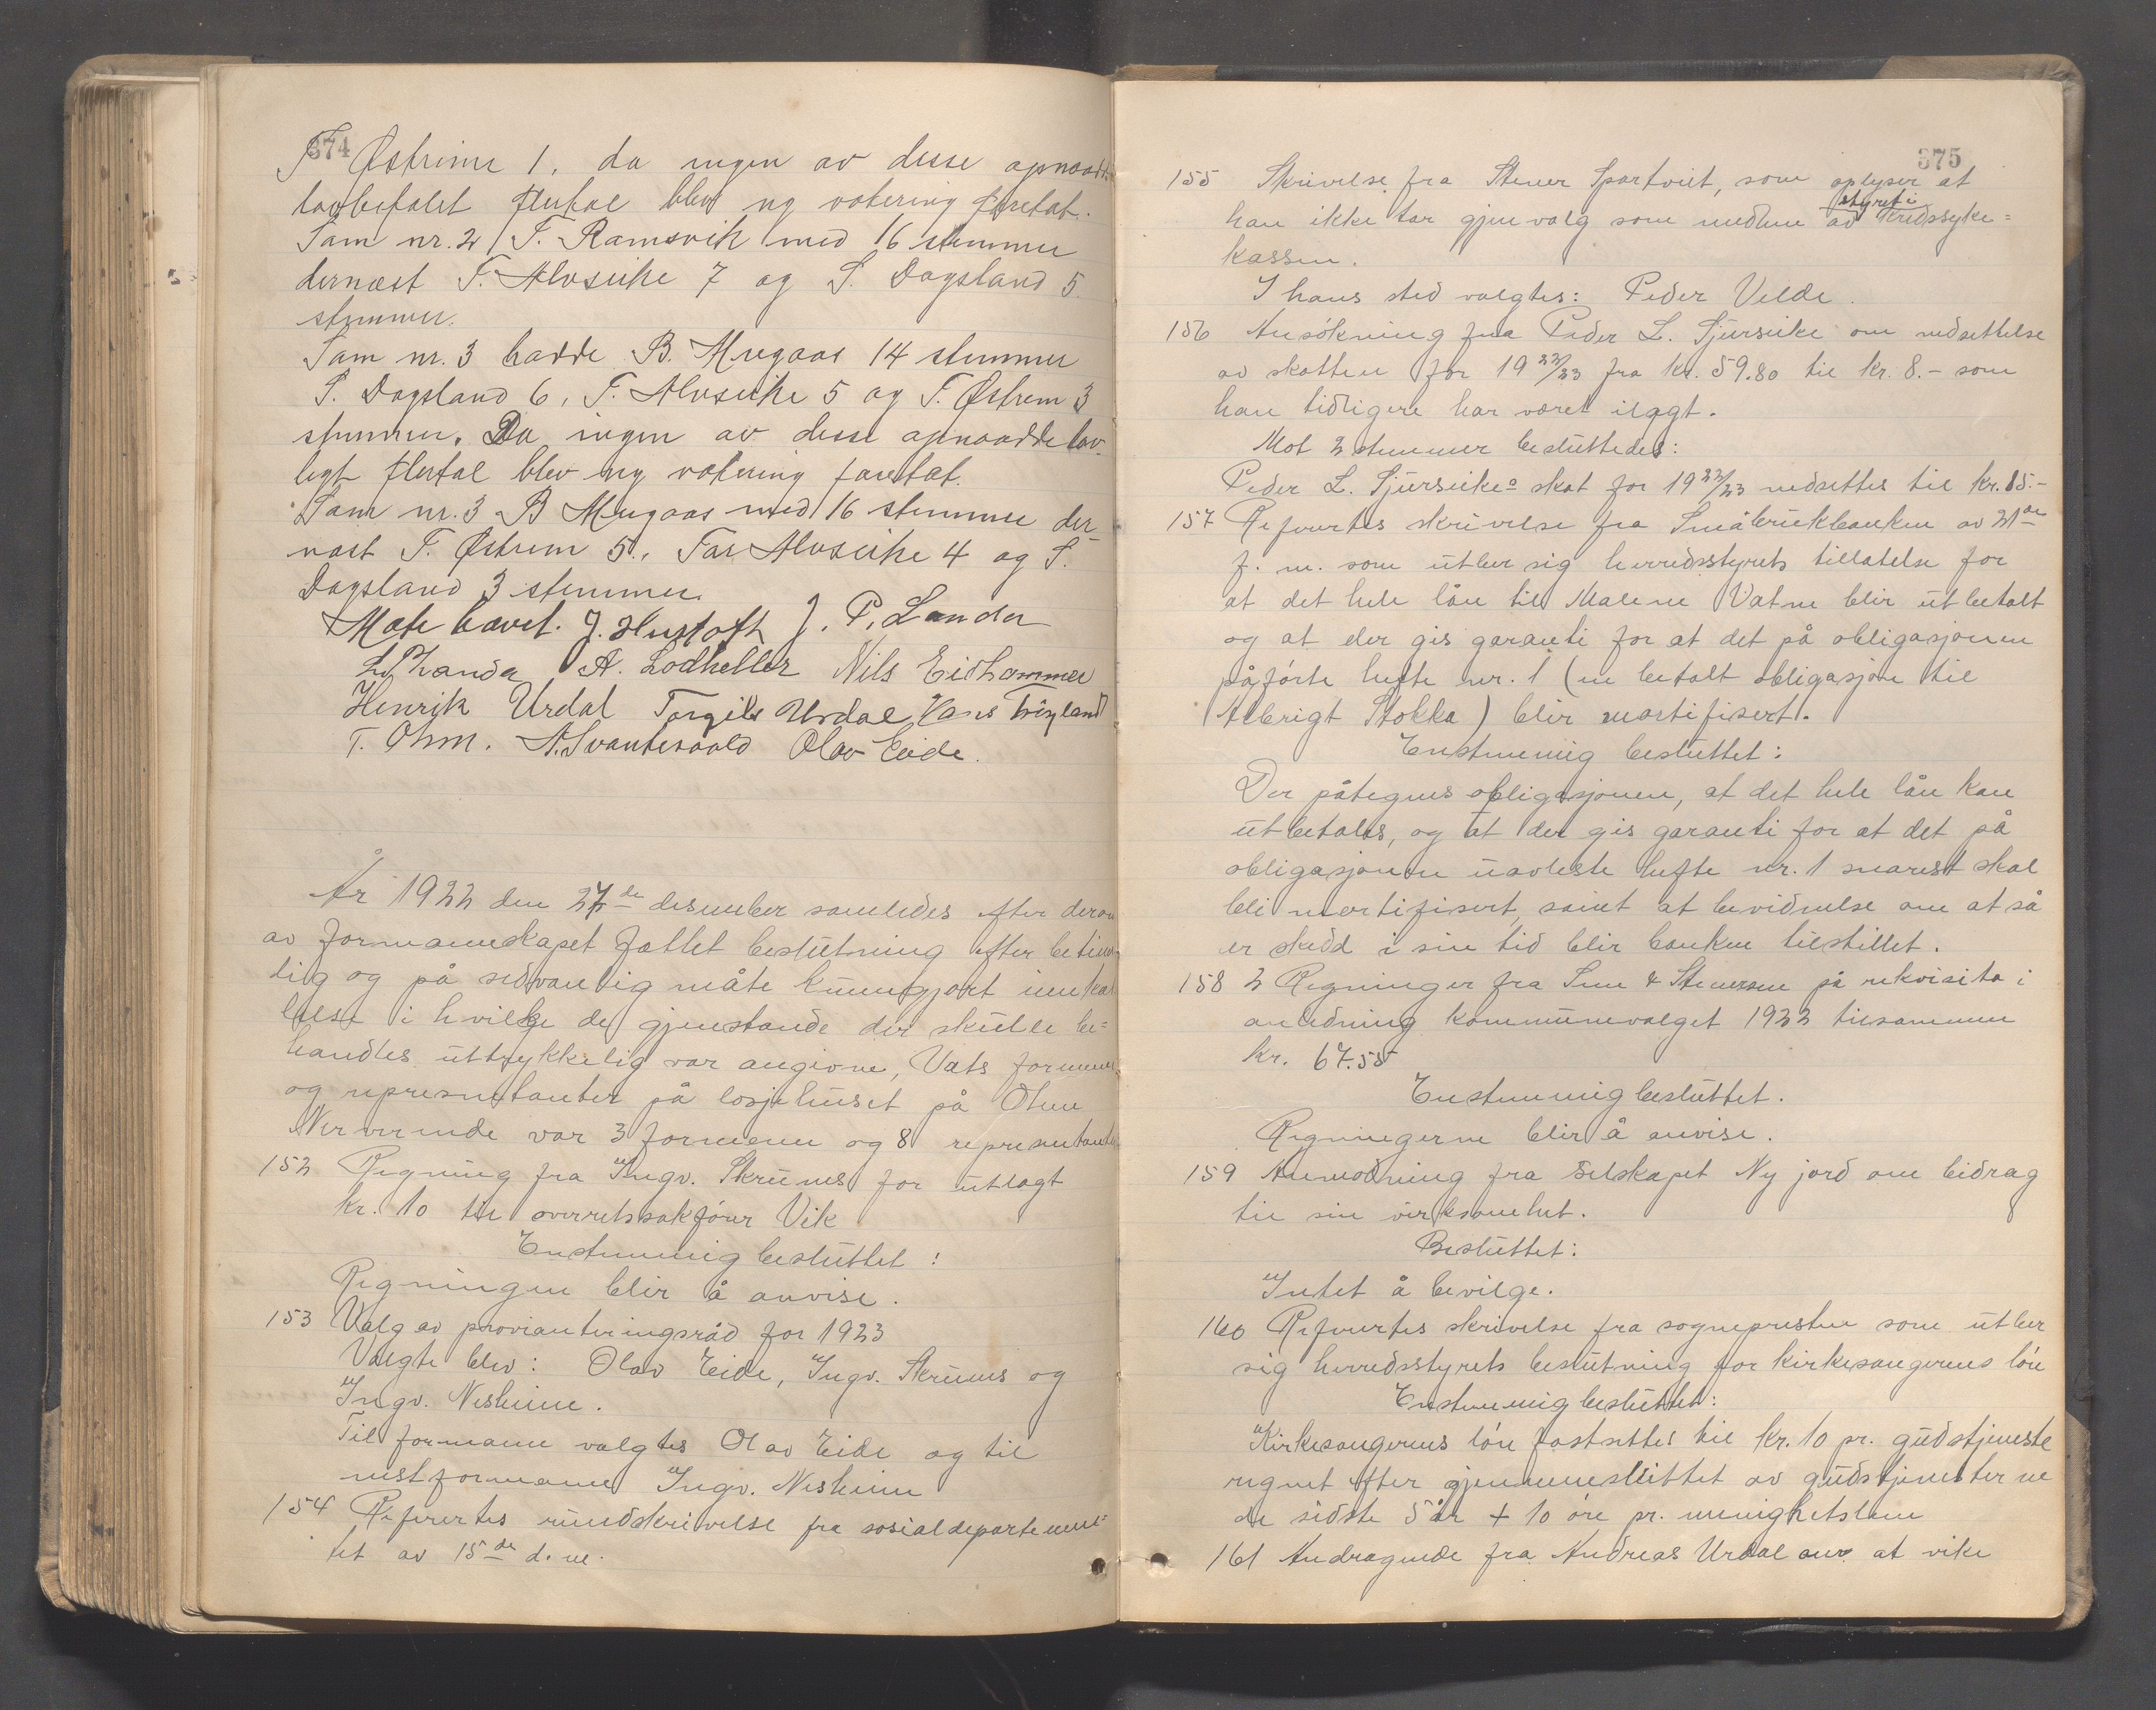 374
T Østreim 1. da ingen av disse opnaadde
lovbefalet flertal blev ny votering foretat.
Som nr. 2 T. Ramsvik med 16 stemmer
dernæst T. Alvseike 7 og S. Dagsland 5
stemmer.
Som nr. 3 hadde B. Mugaas 14 stemmer
S. Dagsland 6, T. Alvseike 5 og T. Østrem 3
stemmer. Da ingen av disse opnaadde lov-
ligt flertal blev ny votering foretat.
Som nr. 3 B Mugaas med 16 stemmer der-
næst T. Østrem 5, Tar Alvseike 4 og S.
Dagsland 3 stemmer.
Møte hævet. J. Hustoft J. P. Landa
L Landa A. Lodheller Nils Eidhammer
Henrik Urdal Torgils Urdal Hans
T. Ohm. Olav Eide.
År 1922 den 27de desember samledes efter derom
av formannskapet fattet beslutning efter betime-
lig og på sedvanlig måte kunngjort innkal
lelse i hvilke de gjenstande der skulde be=
handles uttrykkelig var angivne, Vats formenn
og representanter på losjehuset på Ohm
Nerverende var 3 formenn og 8 representanter
152 Regning fra Ingv. Skeiines for utlagt
kr. 10 til overretssakfører Vik
Enstemmig besluttet:
Regningen blir å anvise.
153 Valg av provianteringsråd for 1923
Valgte blev: Olav Eide, Ingv. og
Ingv. Nesheim.
Til formann valgtes Olav Eide og til
nestformann Ingv. Nesheim
154 Refertes rundskrivelse fra sosialdepartemen=
tet av 15de d. m.
375
155 Skrivelse fra Stener Sportveit, som oplyser at
styret i
han ikke tar gjenvalg som medlem av Kredssyke=
kassen.
I hans sted valgtes: Peder Velde.
156 Ansökning fra Peder L. Sjurseike om nedsettelse
av skatten for 19 22/23 fra kr. 59.80 til kr. 8.- som
han tidligere har været ilagt.
Mot 2 stemmer besluttedes:
Peder L. Sjurseikes skat for 19 22/23 nedsettes til kr. 15.-
157 Refertes skrivelse fra Småbrukbanken av 21de
f. m. som utber sig herredsstyrets tillatelse for
at det hele lån til Malene Vatne blir utbetalt
og at der gis garanti for at det på obligasjonen
påførte hefte nr. 1 (en betalt obligasjon til
Albrigt Stokka) blir mortifisert.
Enstemmig besluttet:
Der påtegnes obligasjonen, at det hele lån kan
utbetales, og at der gis garanti for at det på
obligasjonen uavleste hefte nr. 1 snarest skal
bli mortifisert, samt at bevidnelse om at så
er skedd i sin tid blir banken tilstillet.
158 2 Regninger fra Sunn & Stenersen på rekvisita i
anledning kommunevalget 1922 tilsammen
kr. 67.55
Enstemmig besluttet.
Regningerne blir å anvise.
159 Anmodning fra selskapet Ny jord om bidrag
til sin virksomhet.
Besluttet:
Intet å bevilge.
160 Refertes skrivelse fra sogneprestem som utber
sig herredsstyrets beslutning for kirkesangerens løn
Enstemmig besluttet:
Kirkesangerens løn fastsettes til kr. 10 pr. gudstjeneste
regnet efter gjennemsnittet av gudstjenesterne
de sidste 5 år + 10 øre pr. menighetslem
161 Andragende fra Andreas Urdal om at vike